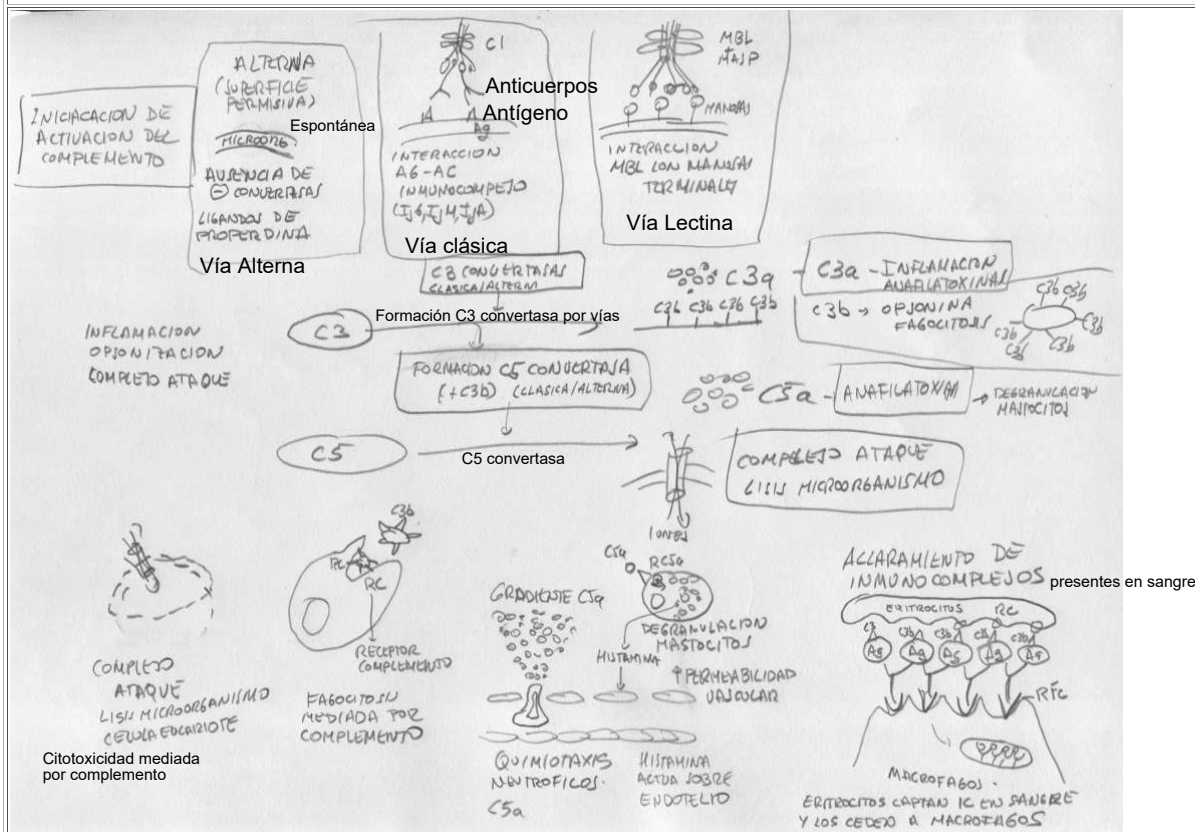 INICIACACION DE
ACTIVACION DEL
COMPLEMENTO
ALTERNA
(SUPERFICIE
PERMISIVA)
Espontánea
MICROORG
AUSENCIA DE
⊖ CONVERTASAS
LIGANDOS DE
PROPERDINA
Vía Alterna
C1
Anticuerpos
Antígeno
Ag
INTERACCION
AG-AC
INMUNOCOMPEJO
(IgG, IgM, IgA)
Vía clásica
MBL
+
MASP
MANOSAS
INTERACCION
MBL CON MANOSAS
TERMINALES
Vía Lectina
C3 CONVERTASAS
CLASICA/ALTERN
C3
Formación C3 convertasa por vías
C3a
C3b C3b C3b C3b
C3a - INFLAMACION
ANAFILATOXINAS
C3b → OPSONINA
FAGOCITOSIS
C3b C3b
C3b C3b
C3b C3b
INFLAMACION
OPSONIZACION
COMPLEJO ATAQUE
FORMACION C5 CONVERTASA
(+C3b) (CLASICA/ALTERNA)
C5a - ANAFILATOXINA → DEGRANULACION
MASTOCITOS
C5
C5 convertasa
COMPLEJO ATAQUE
LISIS MICROORGANISMO
IONES
COMPLEJO
ATAQUE
LISIS MICROORGANISMO
CELULA EUCARIOTE
Citotoxicidad mediada
por complemento
C3b
RC
RC
RECEPTOR
COMPLEMENTO
FAGOCITOSIS
MEDIADA POR
COMPLEMENTO
GRADIENTE C5a
QUIMIOTAXIS
NEUTROFICOS.
C5a
C5a
RC5a
DEGRANULACION
MASTOCITOS
HISTAMINA
↑ PERMEABILIDAD
VASCULAR
HISTAMINA
ACTUA SOBRE
ENDOTELIO
ACLARAMIENTO DE
INMUNOCOMPLEJOS presentes en sangre
ERITROCITOS RC
C3 C3b C3b C3b C3b
Ag Ag Ag Ag Ag
RFc
MACROFAGOS.
ERITROCITOS CAPTAN IC EN SANGRE
Y LOS CEDEN A MACROFAGOS